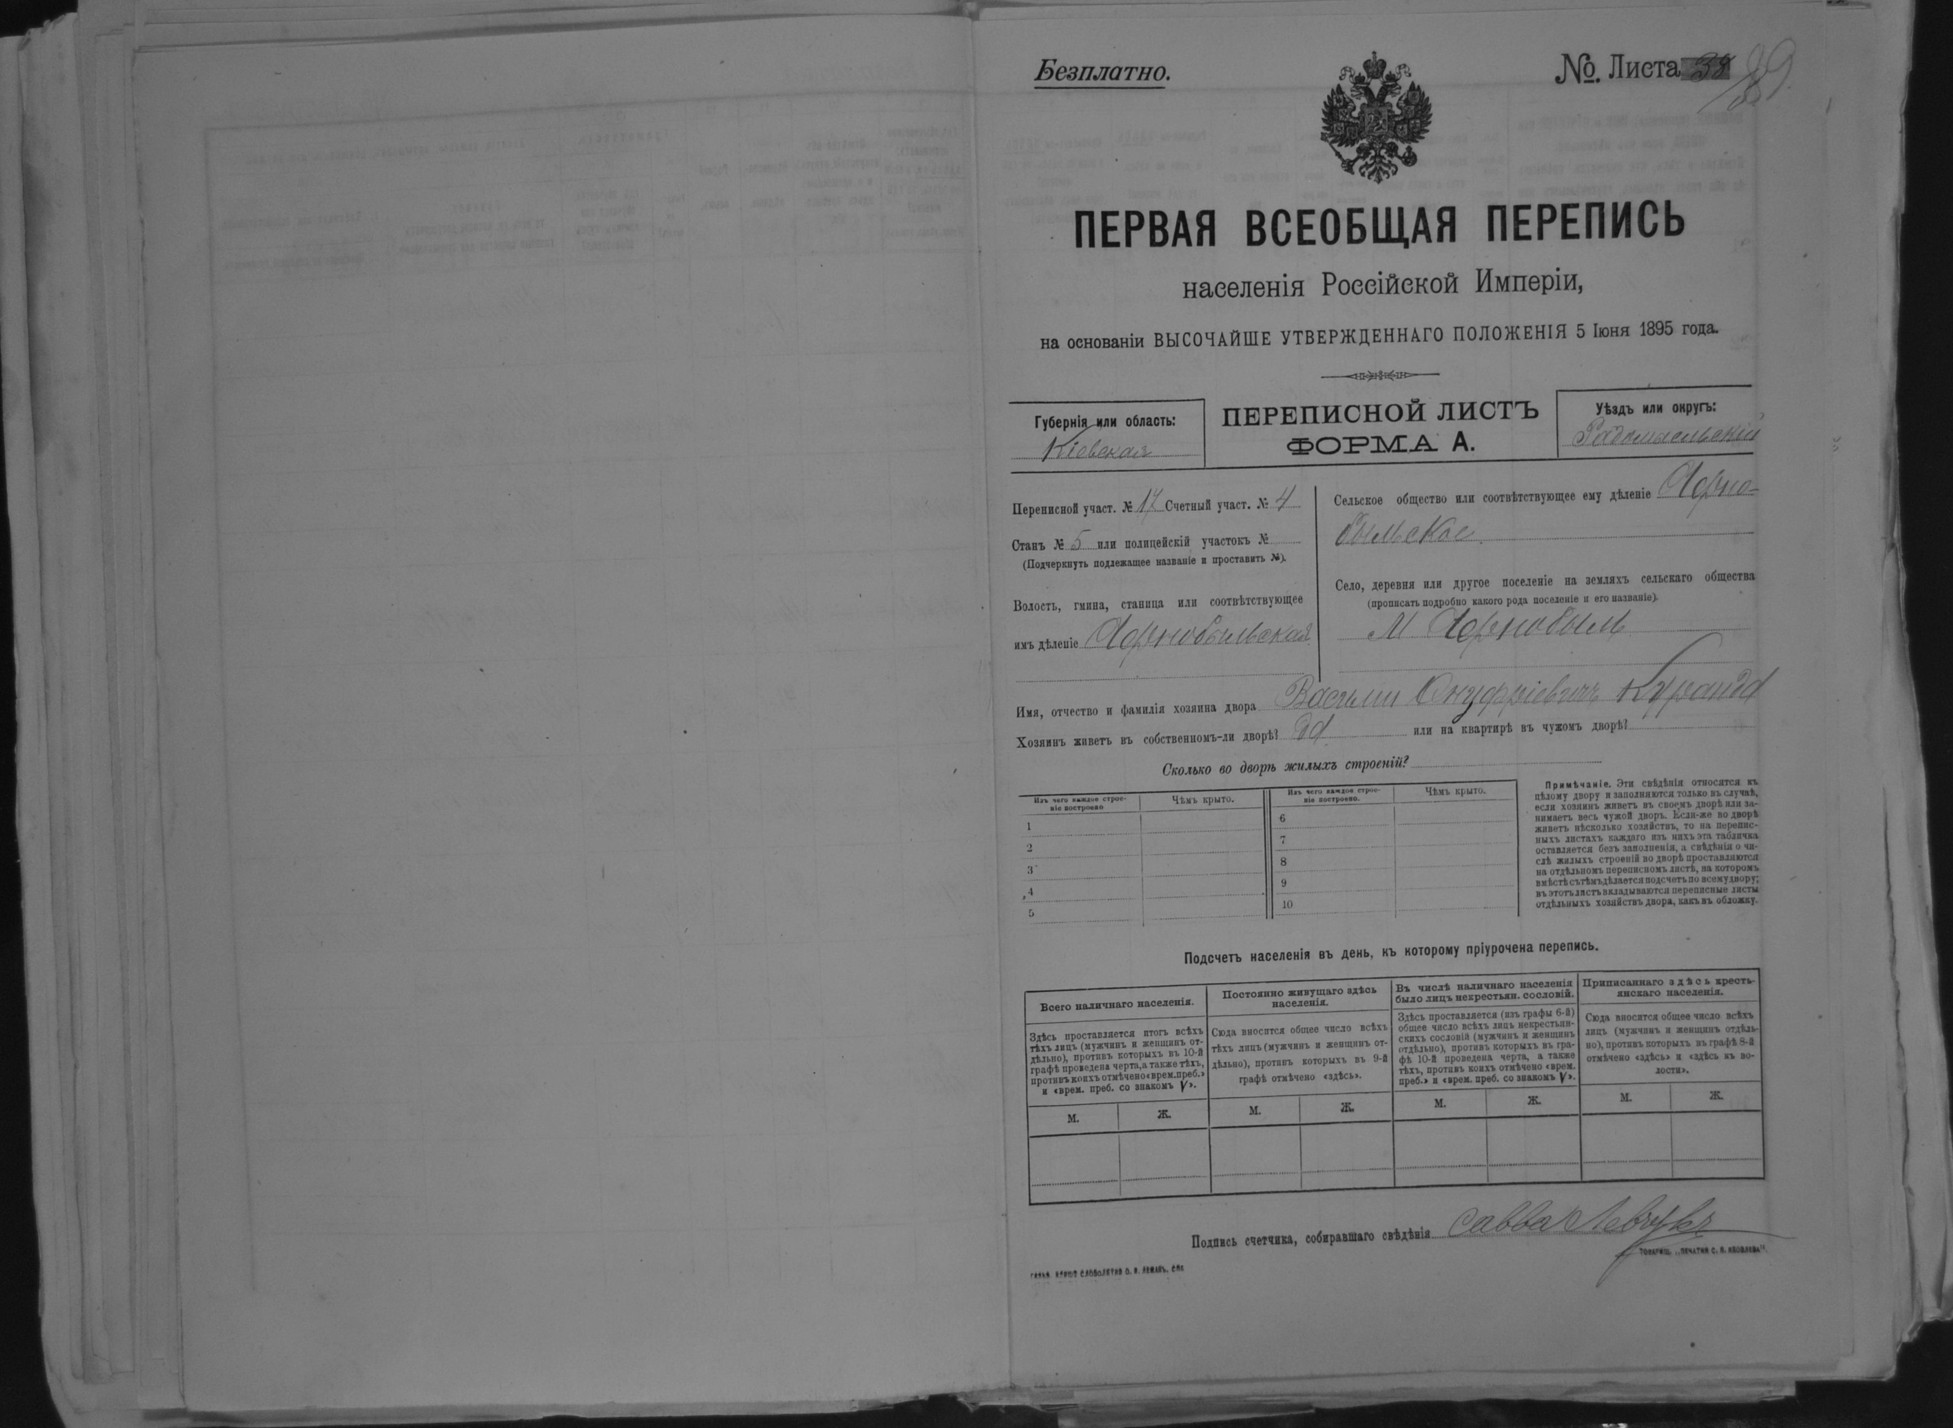 Безплатно.
№. Листа 38
89
ПЕРВАЯ ВСЕОБЩАЯ ПЕРЕПИСЬ
населенія Россійской Имперіи,
на основаніи ВЫСОЧАЙШЕ УТВЕРЖДЕННАГО ПОЛОЖЕНІЯ 5 Іюня 1895 года.
Губернія или область:
Кіевская
ПЕРЕПИСНОЙ ЛИСТЪ
ФОРМА А.
Уѣздъ или округъ:
Радомысльскій
Переписной участ. № 17 Счетный участ. № 4
Станъ № 5 или полицейскій участокъ №
(Подчеркнуть подлежащее названіе и проставить №).
Волость, гмина, станица или соотвѣтствующее
имъ дѣленіе Чернобыльская
Сельское общество или соотвѣтствующее ему дѣленіе Черно-
быльское.
Село, деревня или другое поселеніе на земляхъ сельскаго общества
(прописать подробно какого рода поселеніе и его названіе).
М Чернобыль
Имя, отчество и фамилія хозяина двора Василий Онуфріевичъ
Хозяинъ живетъ въ собственномъ-ли дворѣ? или на квартирѣ въ чужомъ дворѣ?
Сколько во дворѣ жилыхъ строеній?
Изъ чего каждое строе-
ніе построено
Чѣмъ крыто.
Изъ чего каждое строе-
ніе построено.
Чѣмъ крыто.
1
2
3
4
5
6
7
8
9
10
Примѣчаніе. Эти свѣдѣнія относятся къ
цѣлому двору и заполняются только въ случаѣ,
если хозяинъ живетъ въ своемъ дворѣ или за-
нимаетъ весь чужой дворъ. Если-же во дворѣ
живетъ нѣсколько хозяйствъ, то на перепис-
ныхъ листахъ каждаго изъ нихъ эта табличка
оставляется безъ заполненія, а свѣдѣнія о чи-
слѣ жилыхъ строеній во дворѣ проставляются
на отдѣльномъ переписномъ листѣ, на которомъ
вмѣстѣ съ тѣмъ дѣлается подсчетъ по всему двору;
въ этотъ листъ вкладываются переписные листы
отдѣльныхъ хозяйствъ двора, какъ въ обложку.
Подсчетъ населенія въ день, къ которому пріурочена перепись.
Всего наличнаго населенія.
Здѣсь проставляется итогъ всѣхъ
тѣхъ лицъ (мужчинъ и женщинъ от-
дѣльно), противъ которыхъ въ 10-й
графѣ проведена черта, а также тѣхъ,
противъ коихъ отмѣчено «врем. преб.»
и «врем. преб. со знакомъ V».
М.
Ж.
Постоянно живущаго здѣсь
населенія.
Сюда вносится общее число всѣхъ
тѣхъ лицъ (мужчинъ и женщинъ от-
дѣльно), противъ которыхъ въ 9-й
графѣ отмѣчено «здѣсь».
М.
Ж.
Въ числѣ наличнаго населенія
было лицъ некрестьян. сословій.
Здѣсь проставляется (изъ графы 6-й)
общее число всѣхъ лицъ некрестьян-
скихъ сословій (мужчинъ и женщинъ
отдѣльно), противъ которыхъ въ гра-
фѣ 10-й проведена черта, а также
тѣхъ, противъ коихъ отмѣчено «врем.
преб.» и «врем. преб. со знакомъ V».
М.
Ж.
Приписаннаго здѣсь кресть-
янскаго населенія.
Сюда вносится общее число всѣхъ
лицъ (мужчинъ и женщинъ отдѣль-
но), противъ которыхъ въ графѣ 8-й
отмѣчено «здѣсь» и «здѣсь къ во-
лости».
М.
Ж.
Подпись счетчика, собиравшаго свѣдѣнія Савва Левчукъ
ТОВАРИЩ. „ПЕЧАТНЯ С. П. ЯКОВЛЕВА".